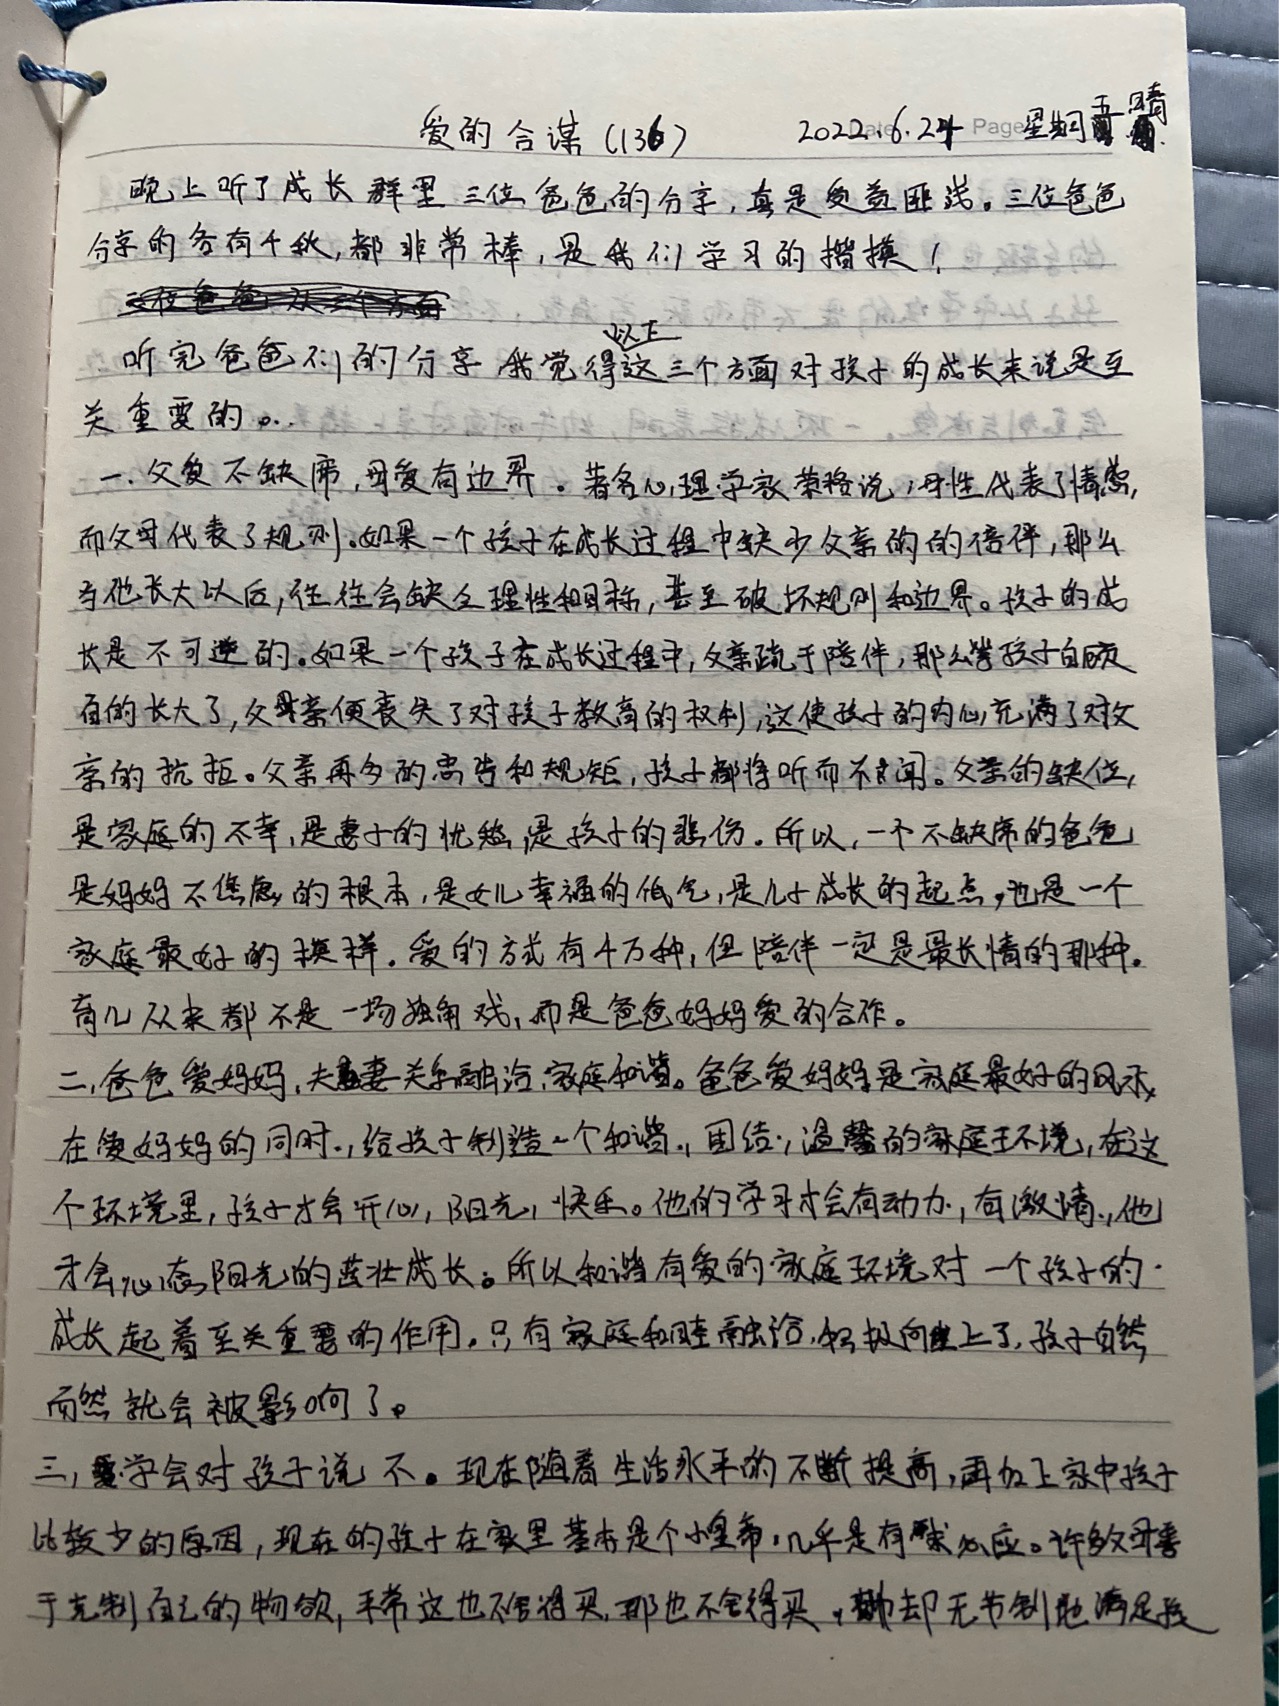 爱的合谋(136) 2022.6.24 Page 星期五 晴
晚上听了成长群里三位爸爸的分享,真是受益匪浅。三位爸爸
分享的各有千秋,都非常棒,是我们学习的揩摸!
三位爸爸从三个方面
以上
听完爸爸们的分享 我觉得这三个方面对孩子的成长来说是至
关重要的。..
一.父爱不缺席,母爱有边界。著名心理学家荣格说,母性代表了情感,
而父母代表了规则。如果一个孩子在成长过程中缺少父亲的的陪伴,那么
当他长大以后,往往会缺乏理性和目标,甚至破坏规则和边界。孩子的成
长是不可逆的。如果一个孩子在成长过程中,父亲疏于陪伴,那么当孩子自顾
自的长大了,父亲便丧失了对孩子教育的权利,这使孩子的内心充满了对父
亲的抗拒。父亲再多的忠告和规矩,孩子都将听而不闻。父亲的缺位,
是家庭的不幸,是妻子的忧愁,是孩子的悲伤。所以,一个不缺席的爸爸
是妈妈不焦虑的根本,是女儿幸福的低气,是儿子成长的起点,也是一个
家庭最好的模样。爱的方式有千万种,但陪伴一定是最长情的那种。
育儿从来都不是一场独角戏,而是爸爸妈妈爱的合作。
二,爸爸爱妈妈,夫妻关系融洽,家庭和谐。爸爸爱妈妈是家庭最好的风水,
在爱妈妈的同时,给孩子制造一个和谐,团结,温馨的家庭环境,在这
个环境里,孩子才会开心,阳光,快乐。他的学习才会有动力,有激情,他
才会心态阳光的茁壮成长。所以和谐有爱的家庭环境对一个孩子的
成长起着至关重要的作用。只有家庭和睦融洽,积极向上了,孩子自然
而然就会被影响了。
三,学会对孩子说不。现在随着生活水平的不断提高,再加上家中孩子
比较少的原因,现在的孩子在家里基本是个小皇帝,几乎是有求必应。许多父母善
于克制自己的物欲,平常这也不舍得买,那也不舍得买,却无节制地满足孩